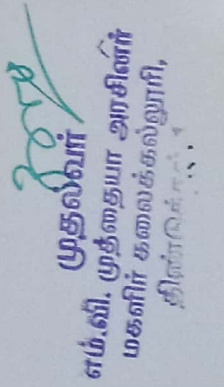 முதல்வர்
எம்.வி. முத்தையா அரசினர்
மகளிர் கலைக்கல்லூரி,